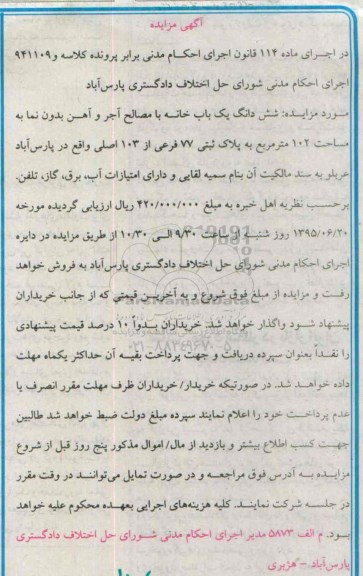 آگهی مزایده
در اجرای ماده ۱۱۴ قانون اجرای احکام مدنی برابر پرونده کلاسه و ۹۴۱۱۰۹
اجرای احکام مدنی شورای حل اختلاف دادگستری پارس‌آباد
مورد مزایده: شش دانگ یک باب خانه با مصالح آجر و آهن بدون نما به
مساحت ۱۰۲ مترمربع به پلاک ثبتی ۷۷ فرعی از ۱۰۳ اصلی واقع در پارس‌آباد
عربلو به سند مالکیت آن بنام سمیه لقایی و دارای امتیازات آب، برق، گاز، تلفن.
برحسب نظریه اهل خبره به مبلغ ۴۲۰/۰۰۰/۰۰۰ ریال ارزیابی گردیده مورخه
۱۳۹۵/۰۶/۲۰ روز شنبه ساعت ۹/۳۰ الی ۱۰/۳۰ از طریق مزایده در دایره
اجرای احکام مدنی شورای حل اختلاف دادگستری پارس‌آباد به فروش خواهد
رفت و مزایده از مبلغ فوق شروع و به آخرین قیمتی که از جانب خریداران
پیشنهاد شود واگذار خواهد شد. خریداران بدواً ۱۰ درصد قیمت پیشنهادی
را نقداً بعنوان سپرده دریافت و جهت پرداخت بقیه آن حداکثر یکماه مهلت
داده خواهد شد. در صورتیکه خریدار/ خریداران ظرف مهلت مقرر انصرف یا
عدم پرداخت خود را اعلام نمایند سپرده مبلغ دولت ضبط خواهد شد طالبین
جهت کسب اطلاع بیشتر و بازدید از مال/ اموال مذکور پنج روز قبل از شروع
مزایده به آدرس فوق مراجعه و در صورت تمایل می‌توانند در وقت مقرر
در جلسه شرکت نمایند. کلیه هزینه‌های اجرایی بعهده محکوم علیه خواهد
بود. م الف ۵۸۷۳ مدیر اجرای احکام مدنی شورای حل اختلاف دادگستری
پارس‌آباد - هژبری